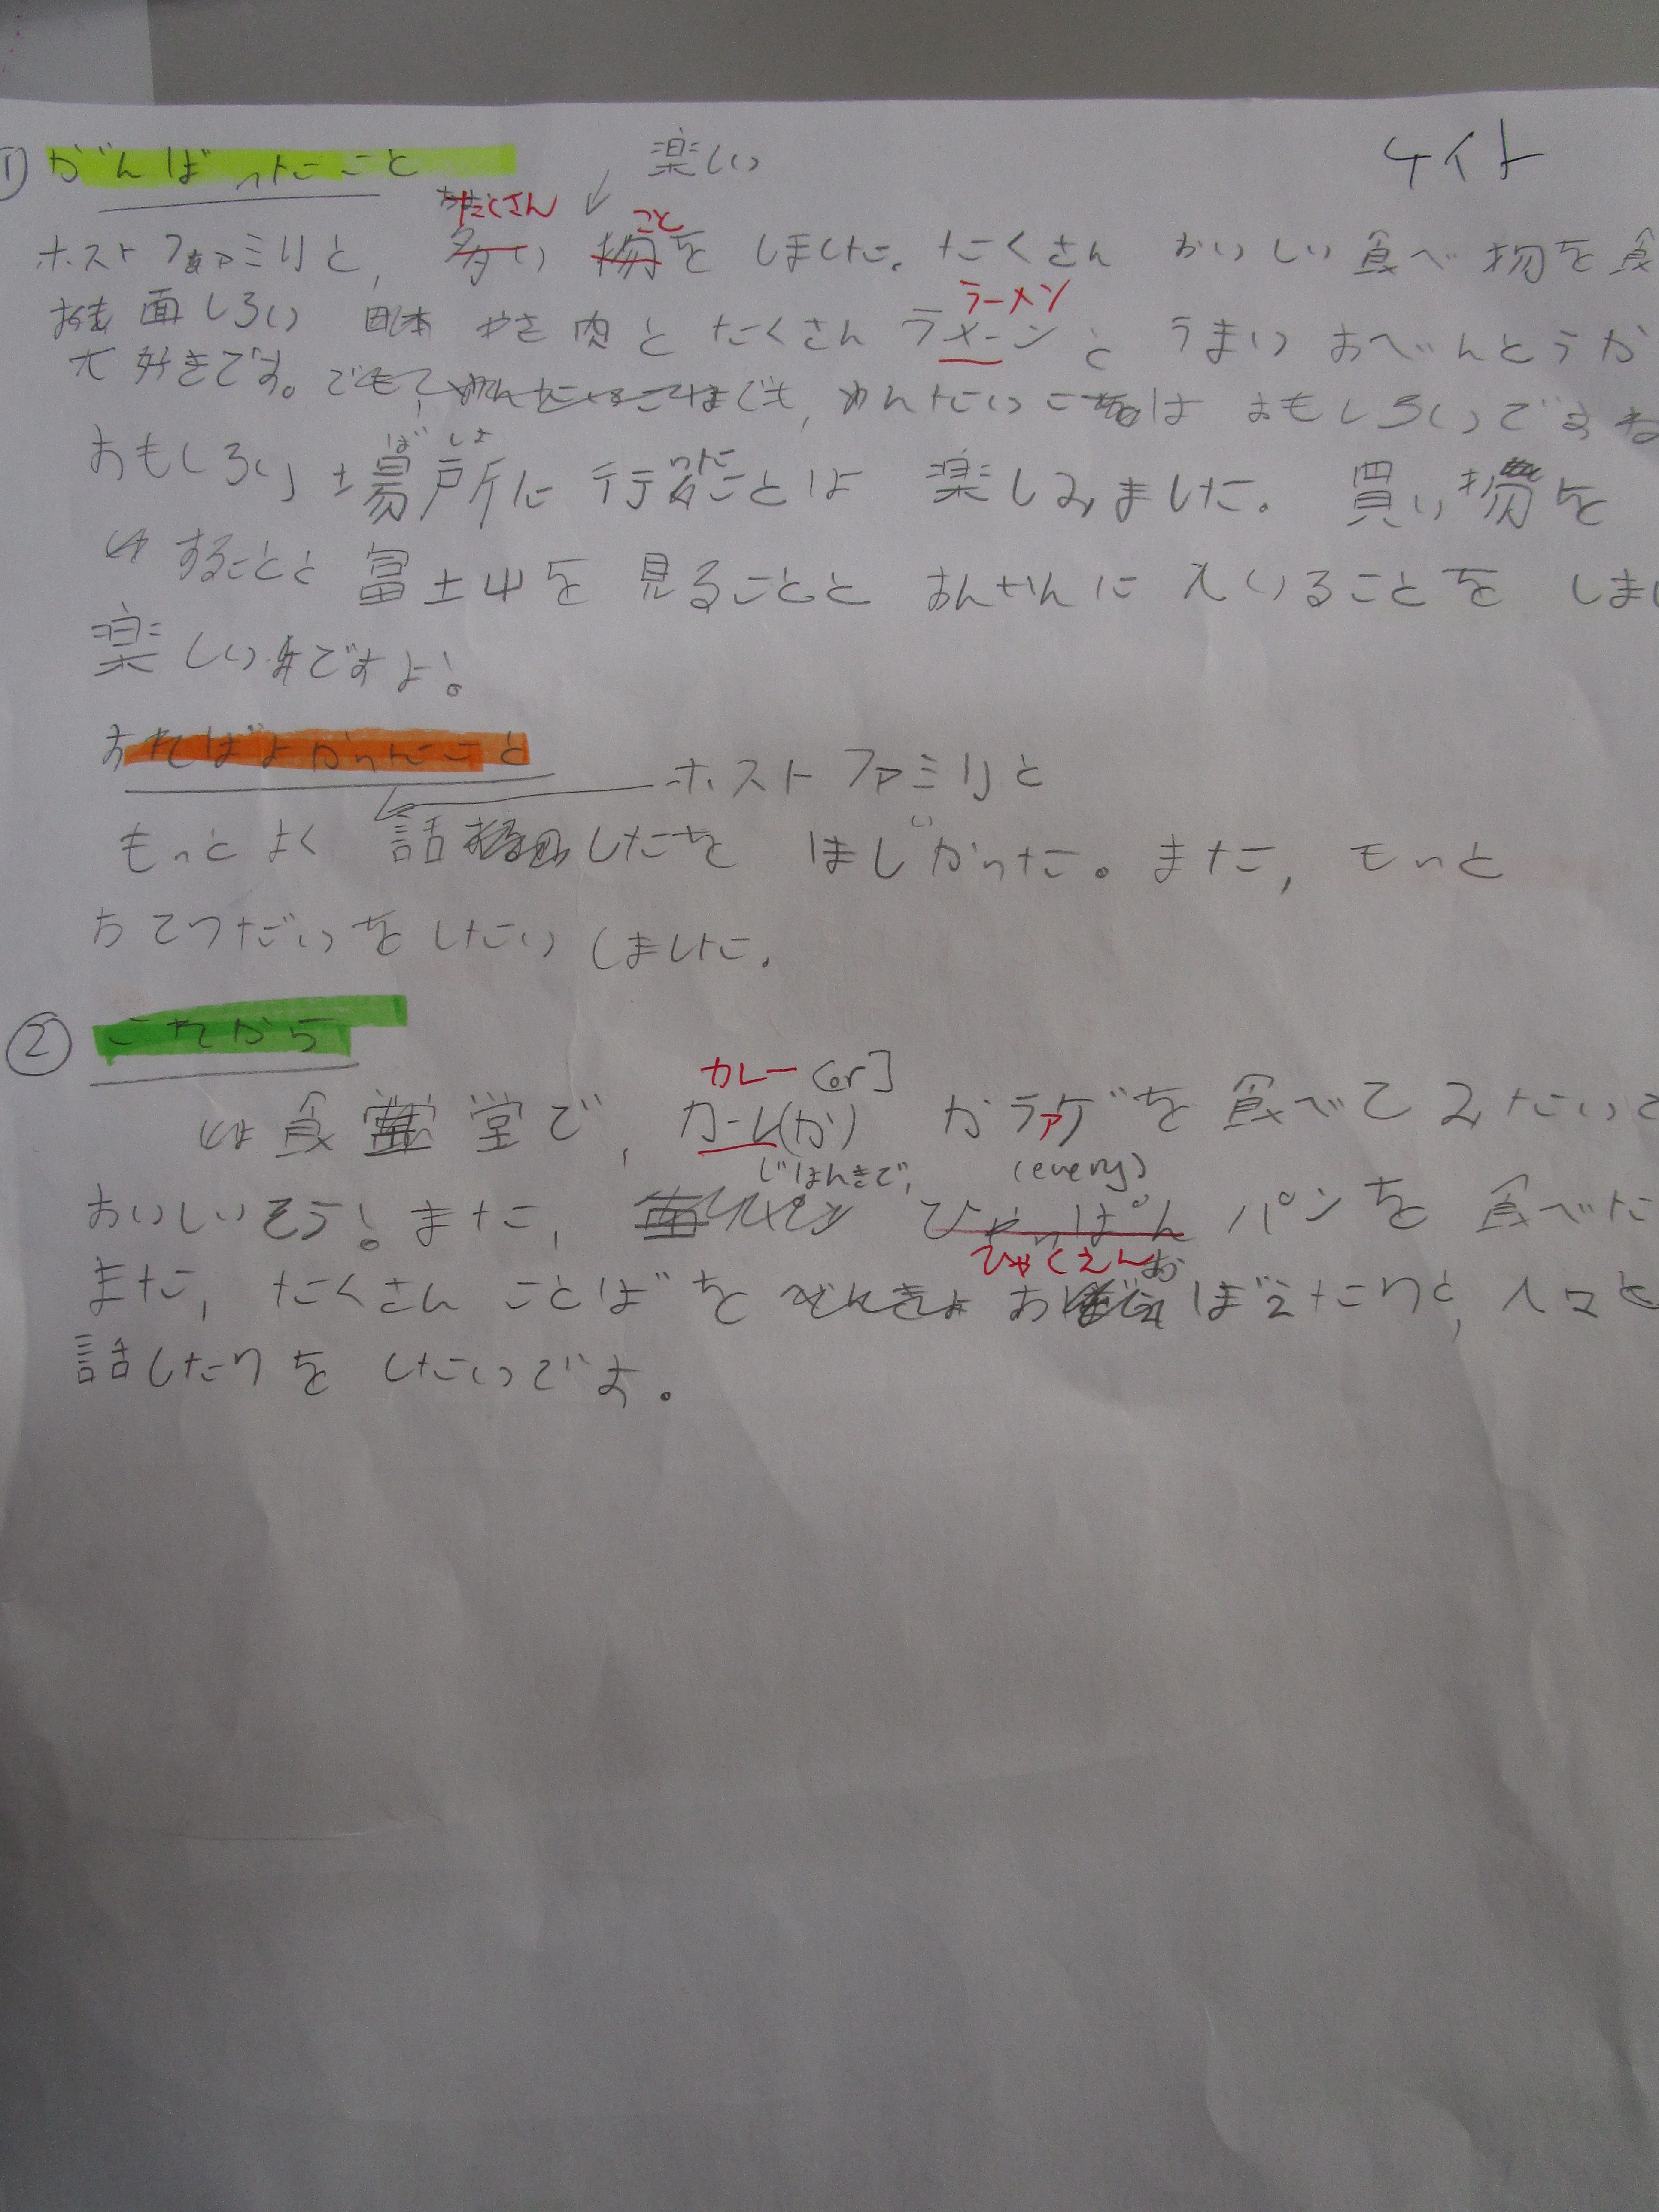 ① がんばったこと
楽しい
ケイト
たくさん
こと
ホストファミリと, 多い 物を しました。たくさん おいしい 食べ物を 食
ラーメン
面しろい やき肉と たくさん ラメーンと うまい おべんとうが
大好きです。でも, めんたいこ は おもしろいですね
ばしょ
おもしろい 場所に 行ったことは 楽しみました。買い物を
することと 富士山を 見ることと おんせんに 入いることを しまし
楽しいですよ!
すればよかったこと
ホストファミリと
もっと よく 話したを ほしかった。また, もっと
おてつだいを したい しました。
② これから
カレー [or]
食堂で, カーレ(か) カラアゲを 食べて みたいで
じはんきで, (every)
おいしいそう! また, ひゃっぱん パンを 食べた
ひゃくえん
また, たくさん ことばを おぼえたりと, 人々と
話したりを したいです。